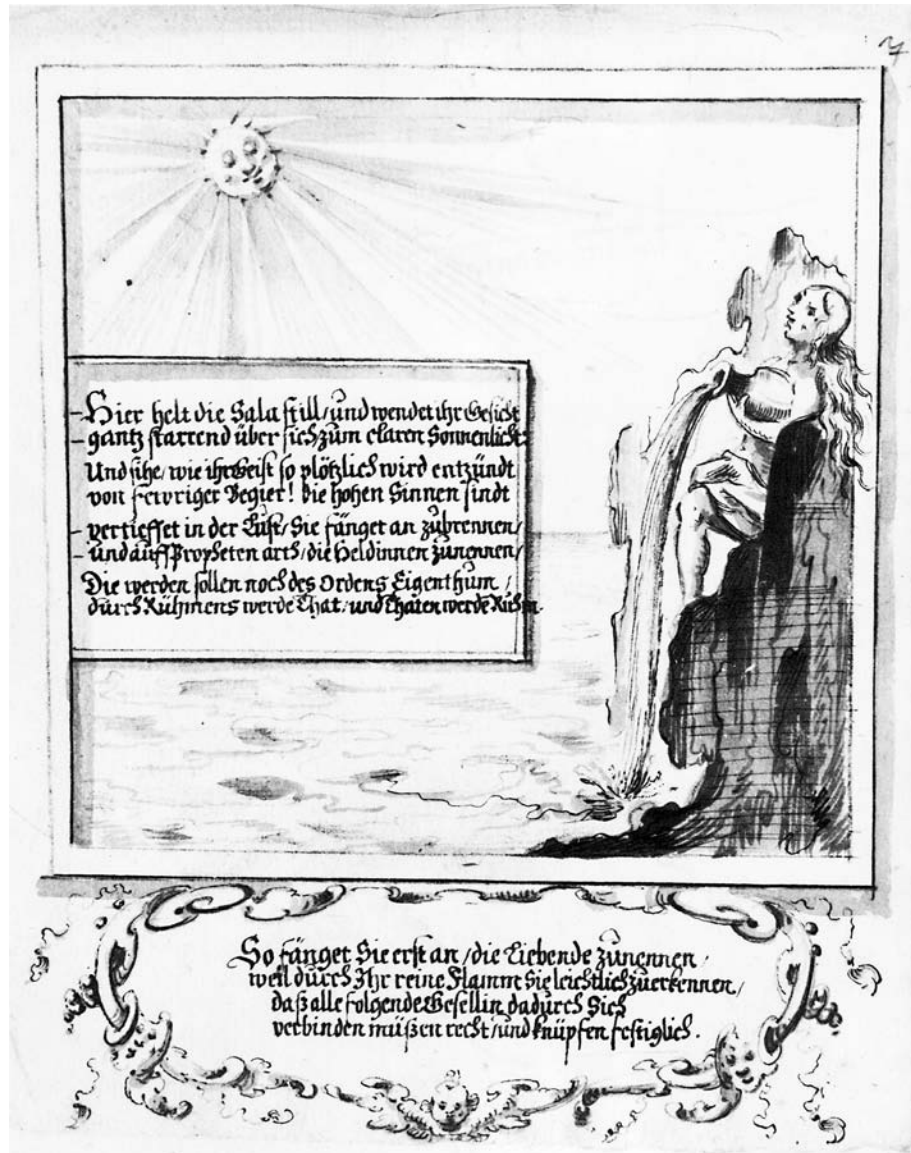 Hier helt die Sala still / und wendet ihr Gesicht
gantz starrend über sich / zum claren Sonnenlicht.
Und sihe / wie ihr Geist so plötzlich wird entzündt
von fewriger Begier! die hohen Sinnen sindt
vertieffet in der Lufft / Sie fänget an zubrennen /
und auff Propheten arth / die Heldinnen zunennen /
Die werden sollen noch des Ordens Eigenthum /
durch Rühmens werde That / und Thaten werde Ruhm.
So fänget Sie erst an / die Liebende zunennen /
weil durch Ihr reine Flamm Sie leichtlich zuerkennen /
daß alle folgende Gesellin dadurch Sich
verbinden müßen recht / und knüpfen festiglich.